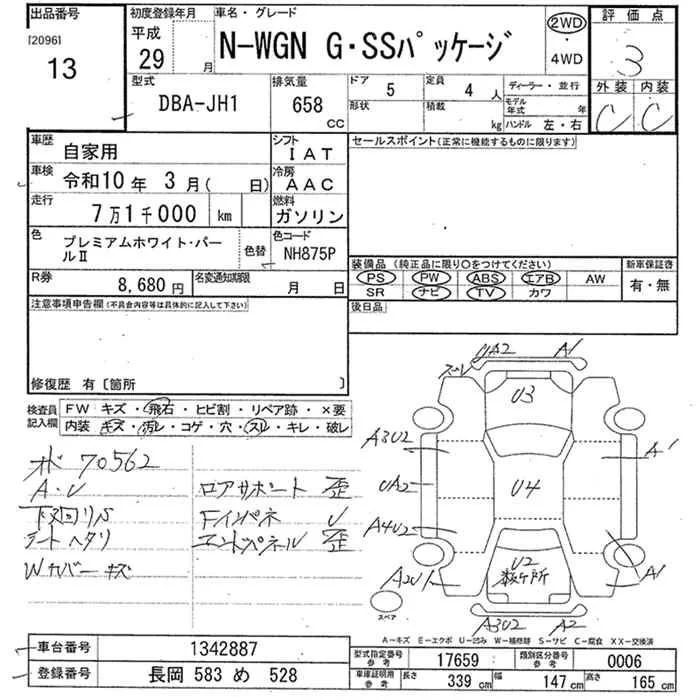 出品番号
[2096]
13
初度登録年月
平成
29 月
車名・グレード
N-WGN G・SSパッケージ
2WD
・
4WD
評価点
3
外装 内装
C C
型式
DBA-JH1
排気量
658
CC
ドア
5
定員
4 人
形状
積載
kg
ディーラー・並行
モデル年式 年
ハンドル 左・右
車歴
自家用
シフト
IAT
車検
令和10年 3月( 日)
冷房
AAC
走行
7万1千000 km
燃料
ガソリン
色
プレミアムホワイト・パールⅡ
色替
色コード
NH875P
R券
8,680円
名変通知期限
月 日
セールスポイント(正常に機能するものに限ります)
装備品 (純正品に限り○をつけてください)
PS PW ABS エアB AW
SR ナビ TV カワ
新車保証書
有・無
後日品
注意事項申告欄(不具合内容等は具体的に記入して下さい)
修復歴 有〔箇所 〕
検査員記入欄
FW キズ・飛石・ヒビ割・リペア跡・×要
内装 キズ・汚レ・コゲ・穴・スレ・キレ・破レ
70562
A・U
下廻リS
シートヘタリ
Wカバーキズ
ロアサポート 歪
Fインパネ U
エンドパネル 歪
スリレ
UA2
A1
U3
A3U2
A1
UA2
U4
A4U2
A2U1
U2
数ヶ所
A1
A3U2
A2
スペア
A-キズ E-エクボ U-凹み W-補修跡 S-サビ C-腐食 XX-交換済
車台番号
1342887
登録番号
長岡 583 め 528
型式指定番号
参考
17659
類別区分番号
参考
0006
車庫証明用
参考
長さ
339 cm
幅
147 cm
高さ
165 cm